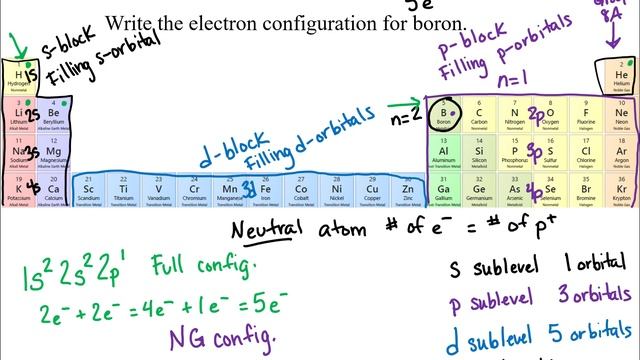 5e
Write the electron configuration for boron.
s-block
Filling s-orbital
p-block
Filling p-orbitals
n=1
8A
n=2
1 H Hydrogen Nonmetal 1s
2 He Helium Noble Gas
3 Li Lithium Alkali Metal 2s 4 Be Beryllium Alkaline Earth Metal
5 B Boron 6 C Carbon Nonmetal 7 N Nitrogen Nonmetal 2p 8 O Oxygen Nonmetal 9 F Fluorine Halogen 10 Ne Neon Noble Gas
d-block
Filling d-orbitals
11 Na Sodium Alkali Metal 3s 12 Mg Magnesium Alkaline Earth Metal
13 Al Aluminum 14 Si Silicon Metalloid 15 P Phosphorus Nonmetal 3p 16 S Sulfur Nonmetal 17 Cl Chlorine Halogen 18 Ar Argon Noble Gas
19 K Potassium Alkali Metal 4s 20 Ca Calcium Alkaline Earth Metal 21 Sc Scandium Transition Metal 22 Ti Titanium Transition Metal 23 V Vanadium Transition Metal 24 Cr Chromium Transition Metal 25 Mn Manganese Transition Metal 3d 26 Fe Iron Transition Metal 27 Co Cobalt Transition Metal 28 Ni Nickel Transition Metal 29 Cu Copper Transition Metal 30 Zn Zinc Transition Metal 31 Ga Gallium 32 Ge Germanium Metalloid 33 As Arsenic Metalloid 4p 34 Se Selenium Nonmetal 35 Br Bromine Halogen 36 Kr Krypton Noble Gas
Neutral atom # of e⁻ = # of p⁺
1s² 2s² 2p¹ Full config.
2e⁻ + 2e⁻ = 4e⁻ + 1e⁻ = 5e⁻
NG config.
s sublevel 1 orbital
p sublevel 3 orbitals
d sublevel 5 orbitals